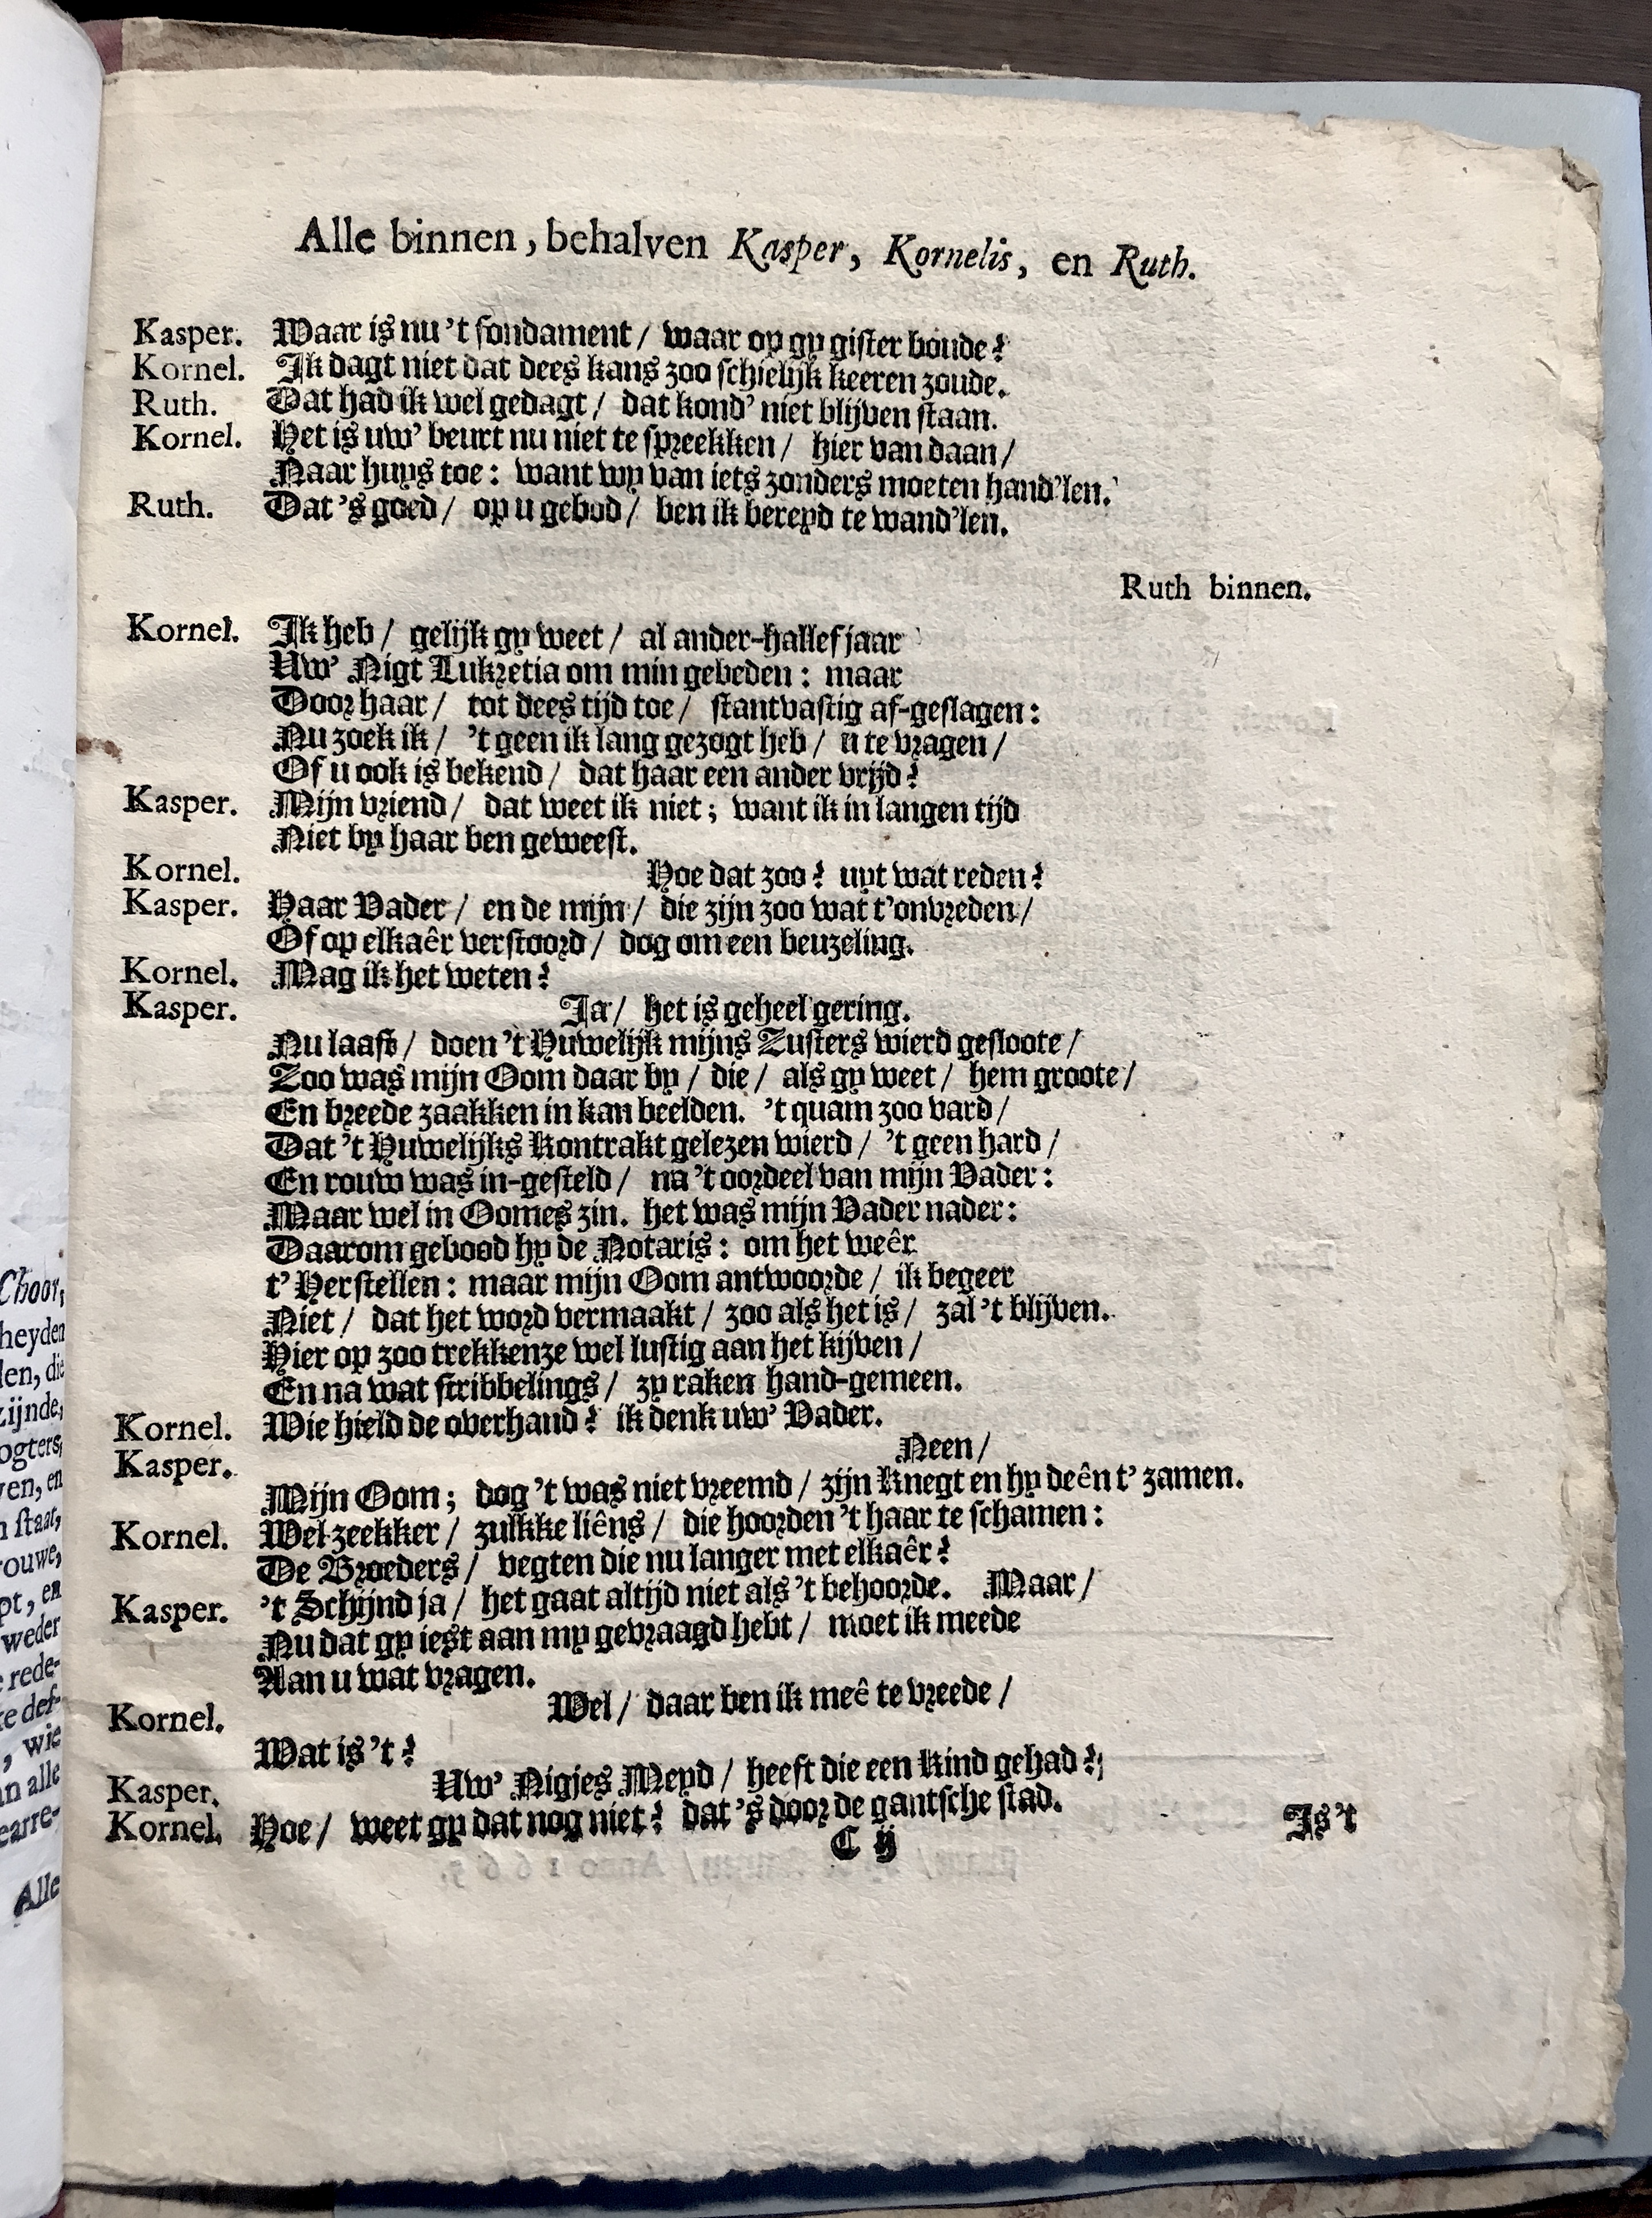 Alle binnen, behalven Kasper, Kornelis, en Ruth.
Kasper. Waar is nu 't fondament / waar op gy gister boude?
Kornel. Ik dagt niet dat dees kans zoo schielijk keeren zoude.
Ruth. Dat had ik wel gedagt / dat kond' niet blijven staan.
Kornel. Het is uw' beurt nu niet te spreekken / hier van daan /
Naar huys toe: want wy van iets zonders moeten hand'len.
Ruth. Dat 's goed / op u gebod / ben ik bereyd te wand'len.
Ruth binnen.
Kornel. Ik heb / gelijk gy weet / al ander-hallef jaar
Uw' Nigt Lukretia om min gebeden: maar
Door haar / tot dees tijd toe / stantvastig af-geslagen:
Nu zoek ik / 't geen ik lang gezogt heb / u te vragen /
Of u ook is bekend / dat haar een ander vrijd?
Kasper. Mijn vriend / dat weet ik niet; want ik in langen tijd
Niet by haar ben geweest.
Kornel. Hoe dat zoo? uyt wat reden?
Kasper. Haar Vader / en de mijn / die zijn zoo wat t'onvreden /
Of op elkaêr verstoord / dog om een beuzeling.
Kornel. Mag ik het weten?
Kasper. Ja / het is geheel gering.
Nu laast / doen 't Huwelijk mijns Zusters wierd gesloote /
Zoo was mijn Oom daar by / die / als gy weet / hem groote /
En breede zaakken in kan beelden. 't quam zoo vard /
Dat 't Huwelijks Kontrakt gelezen wierd / 't geen hard /
En rouw was in-gesteld / na 't oordeel van mijn Vader:
Maar wel in Oomes zin. het was mijn Vader nader:
Daarom gebood hy de Notaris: om het weêr
t' Herstellen: maar mijn Oom antwoorde / ik begeer
Niet / dat het word vermaakt / zoo als het is / zal 't blijven.
Hier op zoo trekkenze wel lustig aan het kijven /
En na wat stribbelings / zy raken hand-gemeen.
Kornel. Wie hield de overhand? ik denk uw' Vader.
Kasper. Neen /
Mijn Oom; dog 't was niet vreemd / zijn Knegt en hy deên t' zamen.
Kornel. Wel zeekker / zulkke liêns / die hoorden 't haar te schamen:
De Broeders / vegten die nu langer met elkaêr?
Kasper. 't Schijnd ja / het gaat altijd niet als 't behoorde. Maar /
Nu dat gy iest aan my gevraagd hebt / moet ik meede
Aan u wat vragen.
Kornel. Wel / daar ben ik meê te vreede /
Wat is 't?
Kasper. Uw' Nigjes Meyd / heeft die een Kind gehad?
Kornel. Hoe / weet gy dat nog niet? dat 's door de gantsche stad.
C ij
Is 't
Choor,
heyden
len, die
zijnde,
ogters,
ven, en
n staat,
rouwe,
pt, en
weder
rede-
te def-
, wie
n alle
earre-
Alle